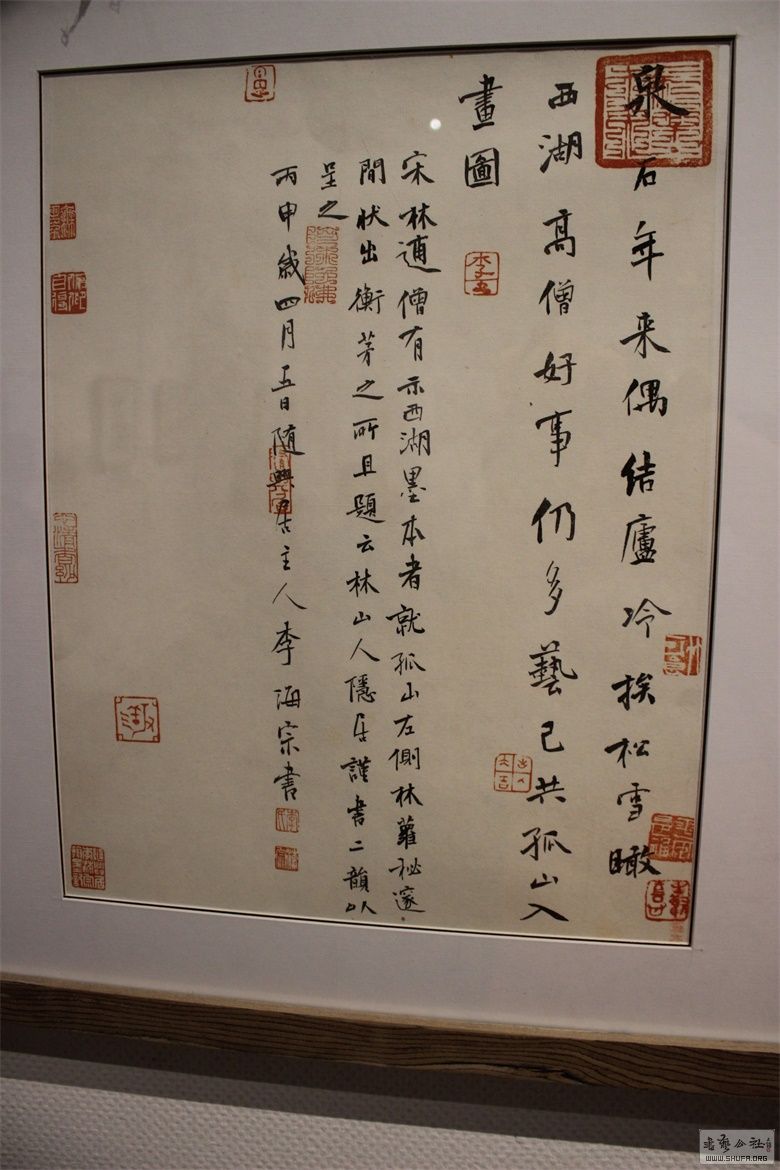 泉石年来偶结廬冷挨松雪瞰
西湖高僧好事仍多藝已共孤山入
畫圖
宋林逋僧有示西湖墨本者就孤山左側林蘿秘邃
間状出衡茅之所且題云林山人隱居謹書二韻以
呈之
丙申歲四月五日随興居主人李海宗书
书艺公社
WWW.SHUFA.ORG